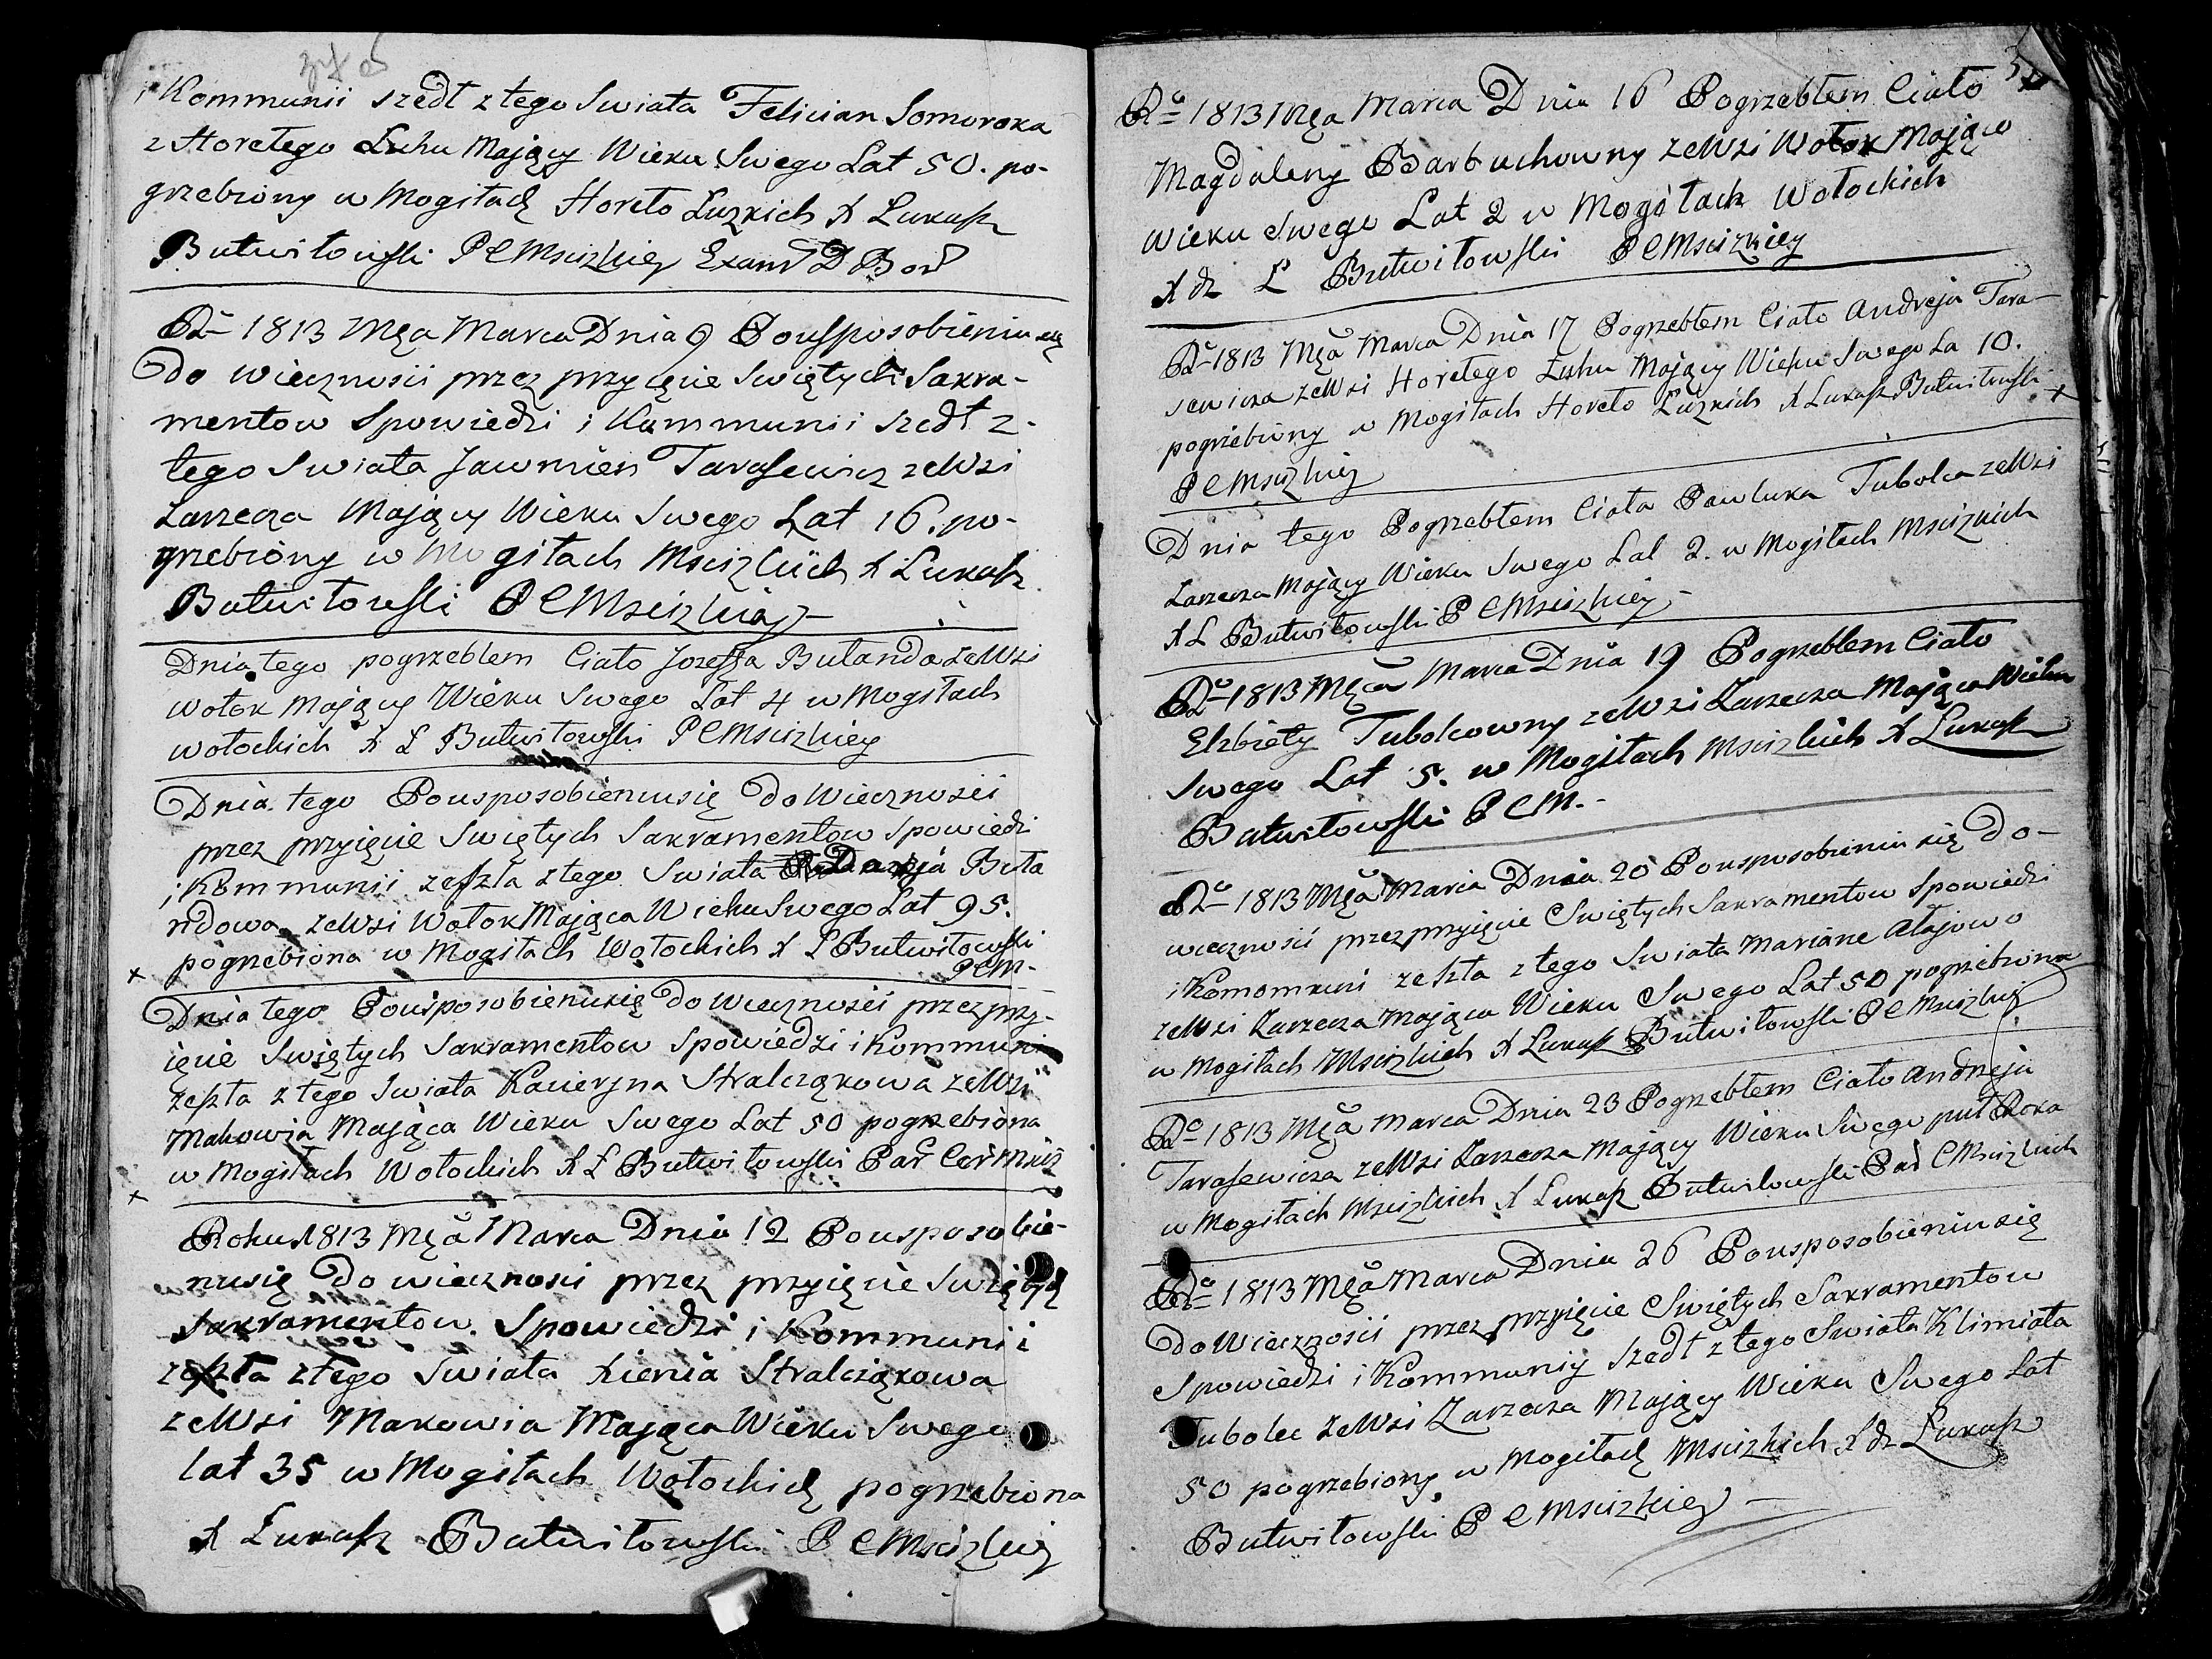 i Kommunii szedł z tego Swiata Felician Somoroka
z Horełego Luhu Mający Wieku Swego Lat 50. po-
grzebiony w Mogiłach Horeło Luzkich X Łukasz
Butwiłowski P C Msciszkiey Exam D Bor
Ro 1813 Mca Marca Dnia 9 Pousposobieniu się
Do wiecznosci przez przyięcie Swiętych Sakra-
mentow Spowiedzi i Kommunii szedł z-
tego Swiata Jawmien Tarasewicz zeWsi
Zarzecza Mający Wieku Swego Lat 16. po-
grzebiony w Mogiłach Msciszkich X Łukasz
Butwiłowski P C Msciszkiey
Dnia tego pogrzebłem Ciało Jozefa Butanda zeWsi
Wołok Mający Wieku Swego Lat 4 w Mogiłach
wołockich X Ł Butwiłowski P C Msciszkiey
Dnia tego Pousposobieniusię Do Wiecznosci
przez przyięcie Swiętych Sakramentow Spowiedzi
i Kommunii zeszła z tego Swiata Buta
ndowa zeWsi Wołok Mająca Wieku Swego Lat 95.
pogrzebiona w Mogiłach Wołockich X Ł Butwiłowski
P C M-
Dnia tego Pousposobieniusię Do Wiecznosci przez przy-
ięcie Swiętych Sakramentow Spowiedzi i Kommuni
zeszła z tego Swiata Kacieryna Stralcząkowa zeWsi
Makowia Mająca Wieku Swego Lat 50 pogrzebiona
w Mogiłach Wołockich X Ł Butwiłowski Par Cer Mscisz
Roku 1813 Mca Marca Dnia 12 Pousposobie-
niusię Do wiecznosci przez przyięcie Swiętych
Sakramentow Spowiedzi i Kommunii
zeszła z tego Swiata Xienia Stralcząkowa
zeWsi Makowia Mająca Wieku Swego
lat 35 w Mogiłach Wołockich pogrzebiona
X Łukasz Butwiłowski P C Msciszkiey
Ro 1813 Mca Marca Dnia 16 Pogrzebłem Ciało
Magdaleny Barbuchowny zeWsi Wołok Mająco
Wieku Swego Lat 2 w Mogiłach Wołockich
X dz Ł Butwiłowski P C Msciszkiey
Ro 1813 Mca Marca Dnia 17 Pogrzebłem Ciało Andreja Tara-
sewicza zeWsi Horełego Łuhu Mający Wieku Swego La 10.
pogrzebiony w Mogiłach Horeło Luzkich X Łukasz Butwiłowski
P C Msciszkiey
Dnia tego Pogrzebłem Ciała Pawluka Tubolca zeWsi
Zarzecza Mający Wieku Swego Lat 2. w Mogiłach Msciszkich
X Ł Butwiłowski P C Msciszkiey-
Ro 1813 Mca Marca Dnia 19 Pogrzebłem Ciało
Elzbiety Tubolcowny zeWsi Zarzecza Mająca Wieku
Swego Lat 5. w Mogiłach Msciszkich X Łukasz
Butwiłowski P C M.-
Ro 1813 Mca Marca Dnia 20 Pousposobieniu się Do-
wiecznosci przez przyięcie Swiętych Sakramentow Spowiedzi
i Komomkuni zeszła z tego Swiata Mariane
zeWsi Zarzecza Mająca Wieku Swego Lat 50 pogrzebiona
w Mogiłach Msciszkich X Łukasz Butwiłowski P C Msciszkiey
Ro 1813 Mca Marca Dnia 23 Pogrzebłem Ciało Andreja
Tarasewicza zeWsi Zarzecza Mający Wieku Swego puł Roka
w Mogiłach Msciszkich X Łukasz Butwiłowski Par C Msciszkich
Ro 1813 Mca Marca Dnia 26 Pousposobieniusię
Do Wiecznosci przez przyięcie Swiętych Sakramentow
Spowiedzi i Kommuniy szedł z tego Swiata Klimiata
Tubolec zeWsi Zarzecza Mający Wieku Swego Lat
50 pogrzebiony w Mogiłach Msciszkich X dz Łukasz
Butwiłowski P C Msciszkiey